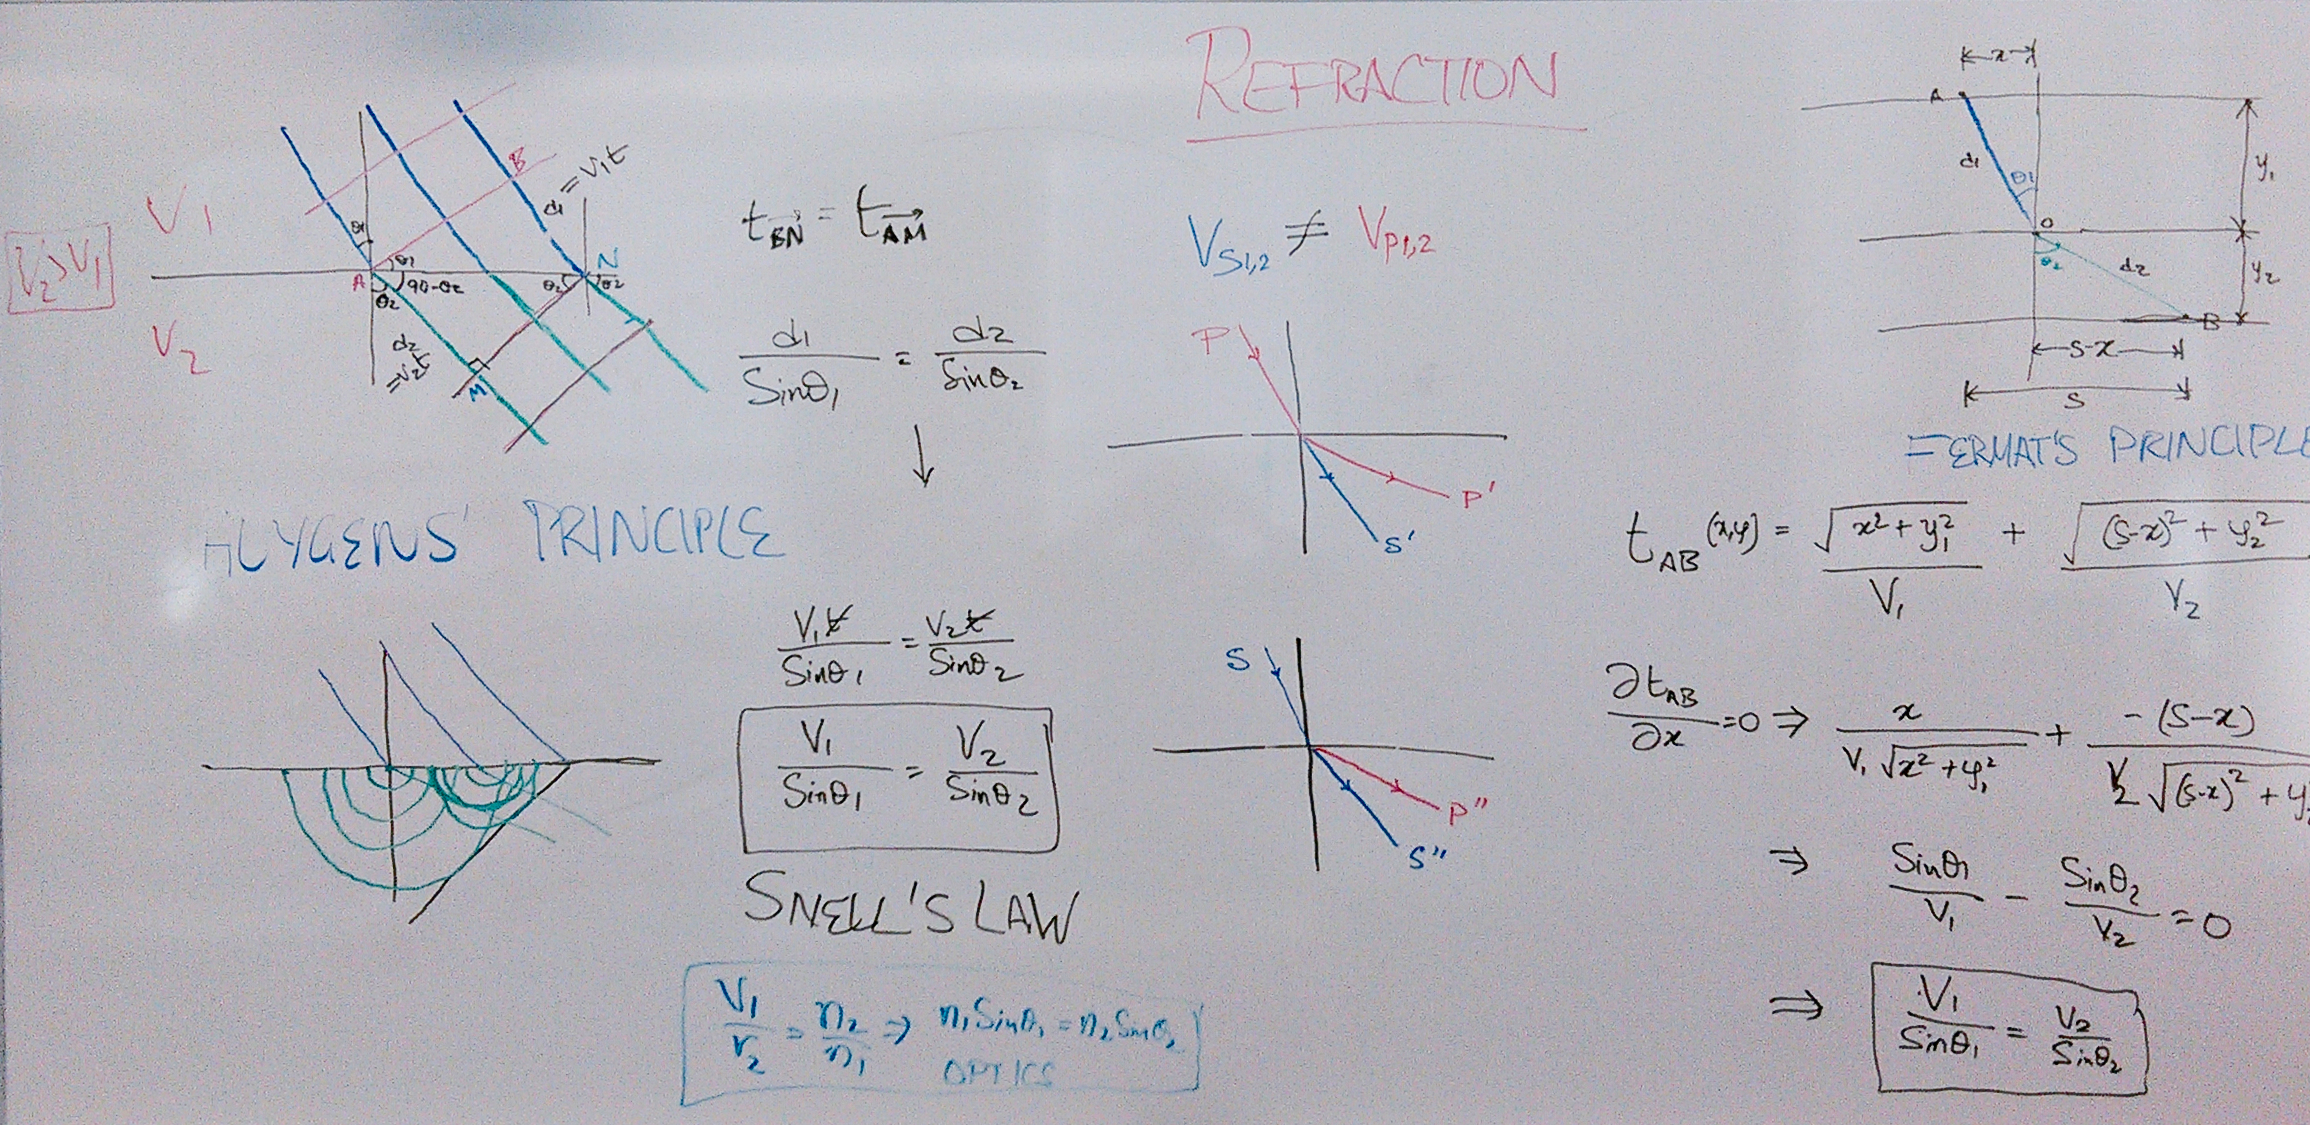 REFRACTION
V1
V2>V1
V2
θ1
A
θ1
90-θ2
θ2
d2
=V2t
M
B
d1 = V1t
N
θ2
θ2
t_BN = t_AM
d1/Sinθ1 = d2/Sinθ2
↓
HUYGENS' PRINCIPLE
V1t/Sinθ1 = V2t/Sinθ2
V1/Sinθ1 = V2/Sinθ2
SNELL'S LAW
V1/V2 = n2/n1 ⇒ n1 Sinθ1 = n2 Sinθ2
OPTICS
VS1,2 ≠ VP1,2
P
P'
S'
S
P"
S"
x
A
d1
θ1
y1
O
θ2
d2
y2
B
S-x
S
FERMAT'S PRINCIPLE
tAB(x,y) = √(x²+y1²)/V1 + √((S-x)²+y2²)/V2
∂tAB/∂x =0 ⇒ x/(V1√(x²+y1²)) + -(S-x)/(V2√((S-x)²+y2
⇒ Sinθ1/V1 - Sinθ2/V2 = 0
⇒ V1/Sinθ1 = V2/Sinθ2